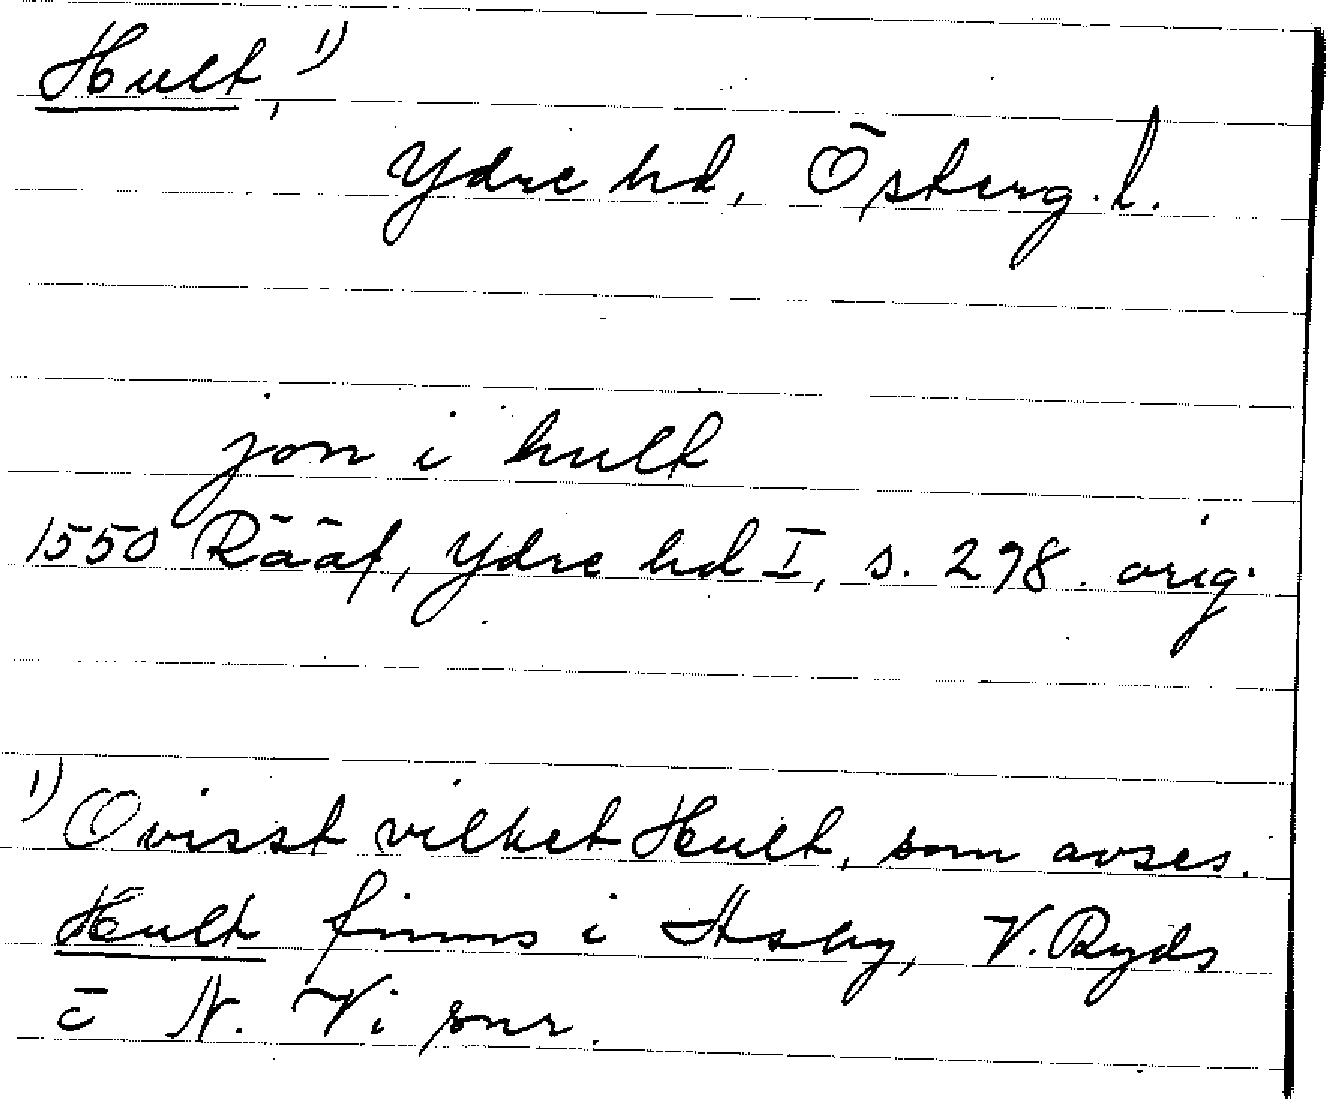 Hult, 1)
Ydre hd, Österg. l.
jon i hult
1550 Rääf, Ydre hd I, s. 298. orig.
1) Ovisst vilket Hult, som avses.
Hult finns i Asby, V. Ryds
o N. Vi snr.